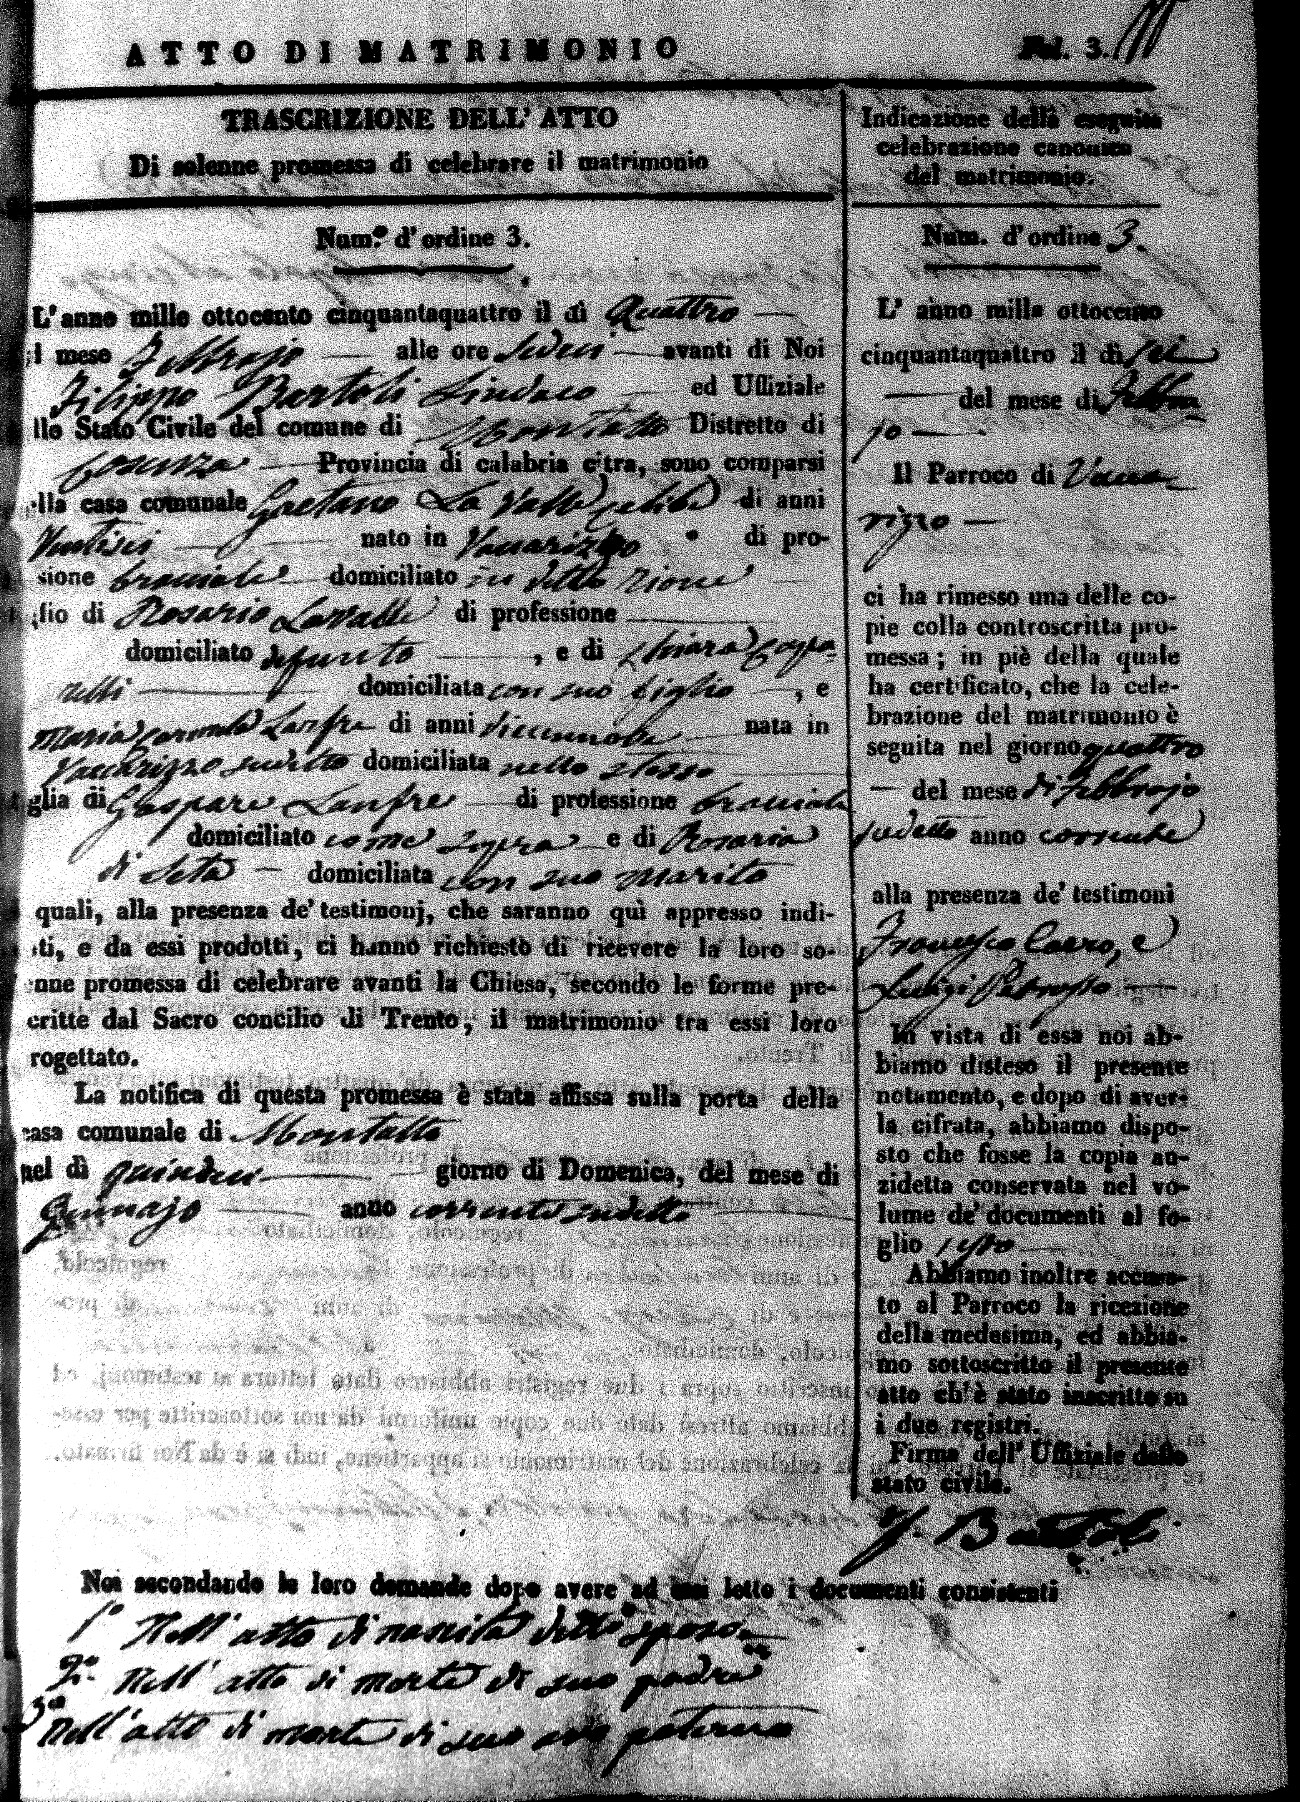 ATTO DI MATRIMONIO
Fol. 3.
TRASCRIZIONE DELL' ATTO
Di solenne promessa di celebrare il matrimonio
Num.º d'ordine 3.
L'anno mille ottocento cinquantaquattro il di Quattro
il mese Febbrajo alle ore sedici avanti di Noi
Filippo Bartoli Sindaco ed Uffiziale
llo Stato Civile del comune di Montalto Distretto di
Cosenza Provincia di calabria citra, sono comparsi
lla casa comunale Gaetano La Valle celibe di anni
Ventisei nato in Vaccarizzo di pro-
sione bracciale domiciliato in detto Rione
glio di Rosario Lavalle di professione
domiciliato defunto, e di Chiara Cappa-
relli domiciliata con suo figlio, e
Maria Carmela Lanfre di anni diecinnove nata in
Vaccarizzo sudetto domiciliata nello stesso
glia di Gaspare Lanfre di professione bracciale
domiciliato come sopra e di Rosaria
di Seta domiciliata con suo marito
quali, alla presenza de' testimonj, che saranno quì appresso indi-
ti, e da essi prodotti, ci hanno richiesto di ricevere la loro so-
nne promessa di celebrare avanti la Chiesa, secondo le forme pre-
critte dal Sacro concilio di Trento, il matrimonio tra essi loro
rogettato.
La notifica di questa promessa è stata affissa sulla porta della
casa comunale di Montalto
nel dì quindici giorno di Domenica, del mese di
Gennajo anno corrente sudetto
Indicazione della eseguita
celebrazione canonica
del matrimonio.
Num. d'ordine 3.
L' anno mille ottocento
cinquantaquattro il dì sei
del mese di Febbra
jo
Il Parroco di Vacca-
rizzo
ci ha rimesso una delle co-
pie colla controscritta pro-
messa; in piè della quale
ha certificato, che la cele-
brazione del matrimonio è
seguita nel giorno quattro
del mese di Febbrajo
sudetto anno corrente
alla presenza de' testimoni
Francesco Caero, e
Luigi
In vista di essa noi ab-
biamo disteso il presente
notamento, e dopo di aver-
la cifrata, abbiamo dispo-
sto che fosse la copia an-
zidetta conservata nel vo-
lume de' documenti al fo-
glio
Abbiamo inoltre accusa-
to al Parroco la ricezione
della medesima, ed abbia-
mo sottoscritto il presente
atto ch'è stato inscritto su
i due registri.
Firma dell' Uffiziale dello
stato civile.
F. Bartoli
Noi secondando le loro domande dopo avere ad essi letto i documenti consistenti
1º Nell'atto di nascita detto sposo
2º Nell'atto di morte di suo padre
3º Nell'atto di morte di suo avo paterno